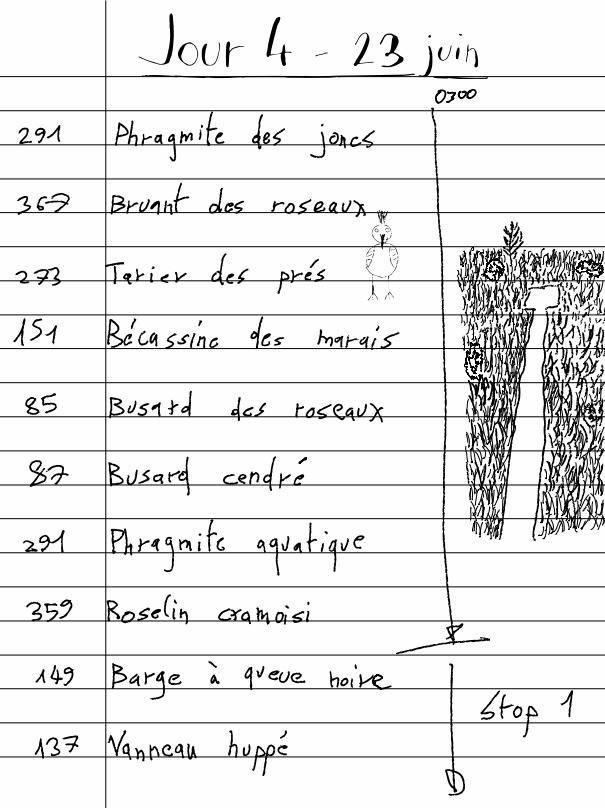 Jour 4 - 23 juin
0300
291 Phragmite des joncs
367 Bruant des roseaux
273 Tarier des prés
151 Bécassine des marais
85 Busard des roseaux
87 Busard cendré
291 Phragmite aquatique
359 Roselin cramoisi
149 Barge à queue noire
Stop 1
137 Vanneau huppé